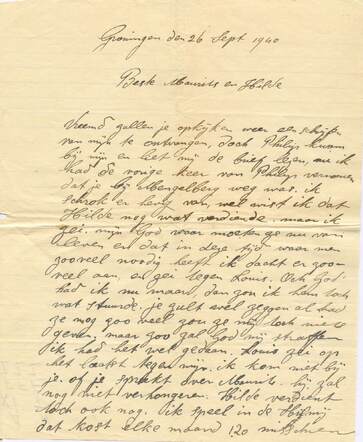 Groningen den 26 Sept 1940
Beste Maurits en Hilde
Vreemd zullen je opkijken weer een schrijfen
van mijn te ontvangen, doch Philip kwam
bij mijn en liet mij de brief lezen, nu ik
had de vorige keer van Philip vernomen
dat je bij Mengelberg weg was. ik
schrok er hevig van, wel wist ik dat
Hilde nog wat verdiende. maar ik
zei. mijn God waar moeten ze nu van
leven en dat in deze tijd waar men
zooveel noodig heeft ik dacht er zoo
veel aan, en zei tegen Louis. Och God
had ik nu maar, dan zou ik hem toch
wat stuurde, je zult wel zeggen al had
ze mog zoo veel zou ze mij toch niets
geven, maar zoo zal God mij straffen
ik had het wel gedaan. Louis zei op
het laatst tegen mijn. ik kom niet bij
je. of je spreekt over Maurits. hij zal
nog niet verhongeren. Hilde verdient
toch ook nog. ik speel in de
dat kost elke maand 120 menschen